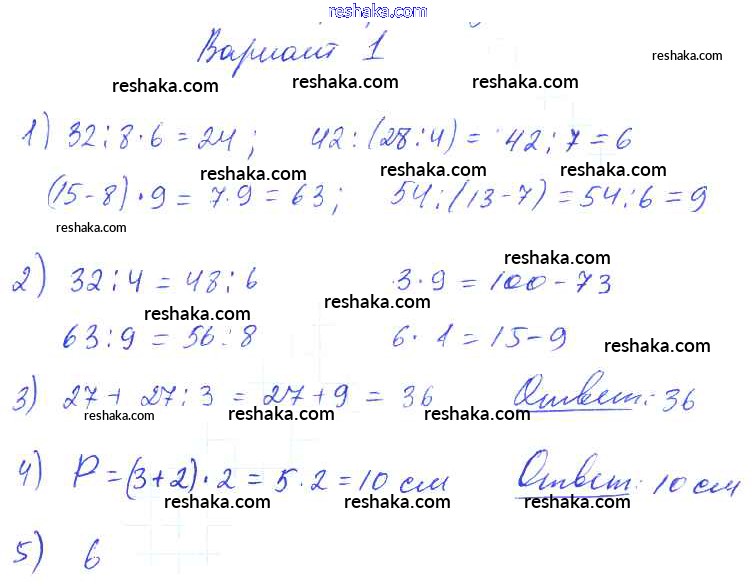 reshaka.com
Вариант 1
reshaka.com reshaka.com reshaka.com
1) 32:8·6=24; 42:(28:4)= 42:7=6
reshaka.com reshaka.com
(15-8)·9= 7·9=63; 54:(13-7)=54:6=9
reshaka.com reshaka.com
2) 32:4=48:6 3·9=100-73
reshaka.com reshaka.com
63:9=56:8 6·1=15-9
reshaka.com reshaka.com
3) 27+27:3=27+9=36 Ответ: 36
reshaka.com reshaka.com reshaka.com reshaka.com
4) P=(3+2)·2=5·2=10 см Ответ: 10 см
reshaka.com reshaka.com reshaka.com
5) 6